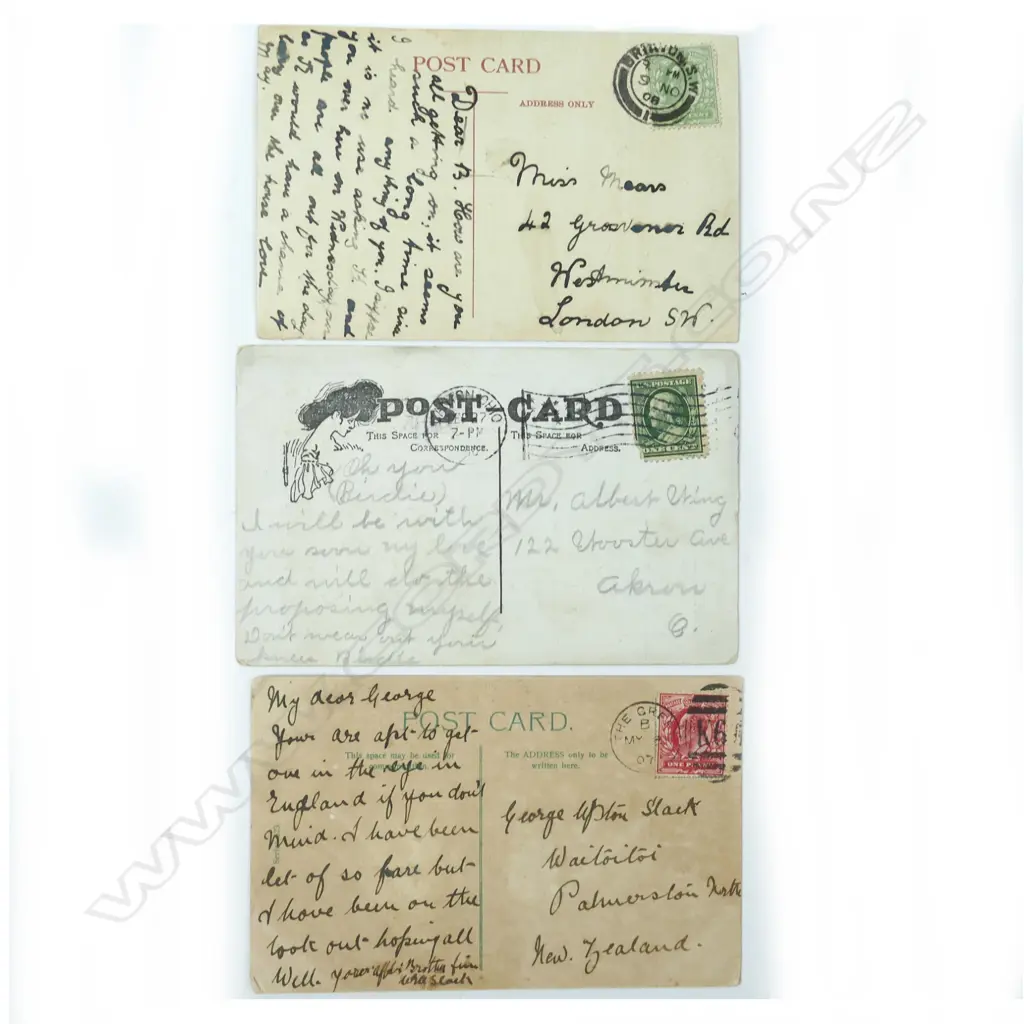 POST CARD
ADDRESS ONLY
BRIXTON. S.W
NO
08
Dear B. How are you
all getting on, it seems
such a long time since
I heard anything of you. I suppose
it is no use asking and
you over here on Wednesday our
people are all out for the day
so would have a chance of
being over the house Love
Miss Mears
42 Grosvenor Rd
Westminster
London SW.
POST CARD
THIS SPACE FOR
CORRESPONDENCE.
THIS SPACE FOR
ADDRESS.
7-PM
U.S. POSTAGE
ONE CENT
Oh you
(Birdie)
I will be with
you soon my love
and will do the
proposing myself.
Don't wear out your
knees Birdie
Mr. Albert Wing
122 Wooster Ave
Akron
O.
POST CARD.
This space may be used for
The ADDRESS only to be
written here.
MY
07
K6
ONE PENNY
My dear George
Yours are apt to get
one in the eye in
England if you don't
Mind. I have been
let of so fare but
I have been on the
look out hoping all
Well. your Brother
Slack
George Upston Slack
Waitoitoi
Palmerston North
New. Zealand.